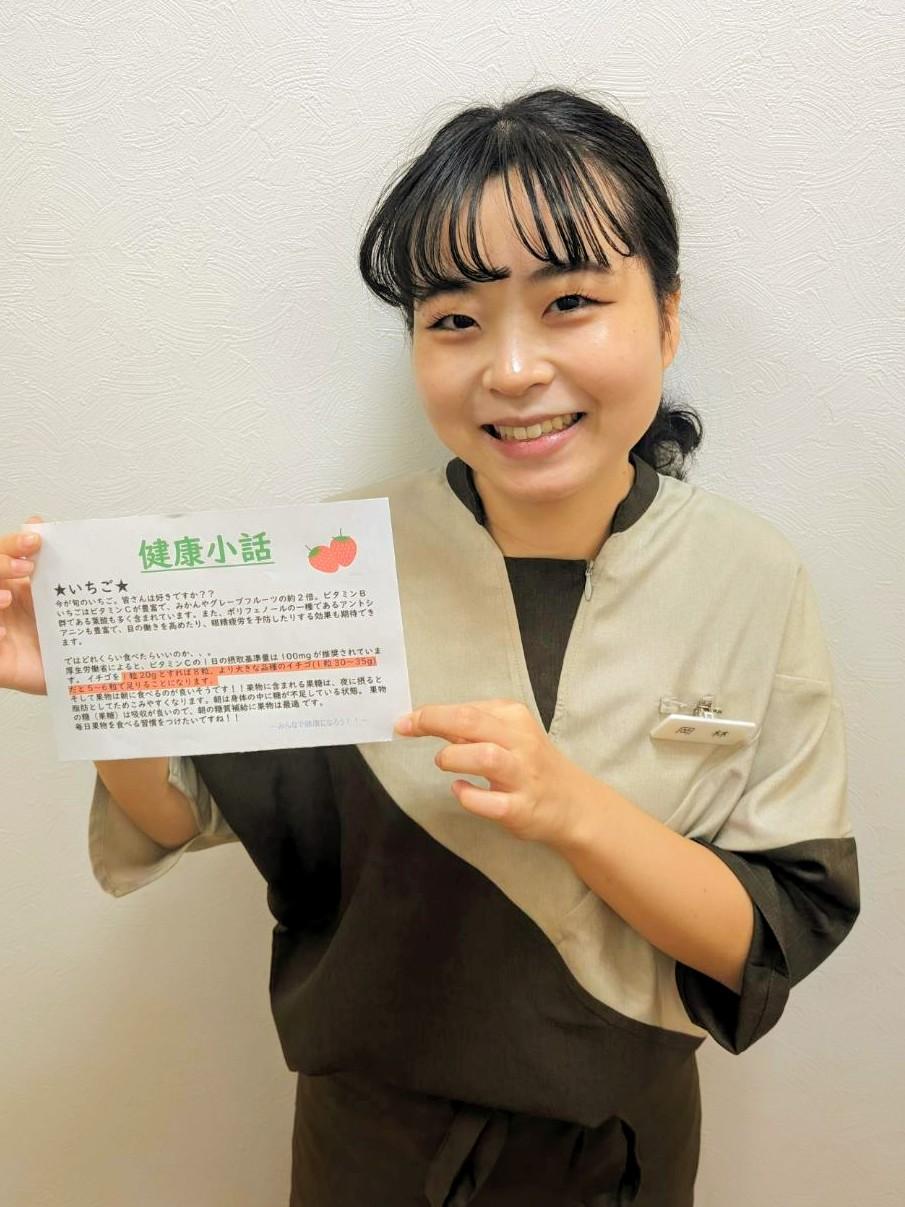 健康小話
★いちご★
今が旬のいちご。皆さんは好きですか？？
いちごはビタミンCが豊富で、みかんやグレープフルーツの約２倍。ビタミンB
群である葉酸も多く含まれています。また、ポリフェノールの一種であるアントシ
アニンも豊富で、目の働きを高めたり、眼精疲労を予防したりする効果も期待でき
ます。
ではどれくらい食べたらいいのか、、。
厚生労働省によると、ビタミンCの１日の摂取基準量は100mgが推奨されていま
す。イチゴを１粒20gとすれば８粒、より大きな品種のイチゴ(１粒30～35g)
だと5～6粒で足りることになります。
そして果物は朝に食べるのが良いそうです！！果物に含まれる果糖は、夜に摂ると
脂肪としてためこみやすくなります。朝は身体の中に糖が不足している状態。果物
の糖（果糖）は吸収が良いので、朝の糖質補給に果物は最適です。
毎日果物を食べる習慣をつけたいですね！！
～みんなで健康になろう！！～
岡林